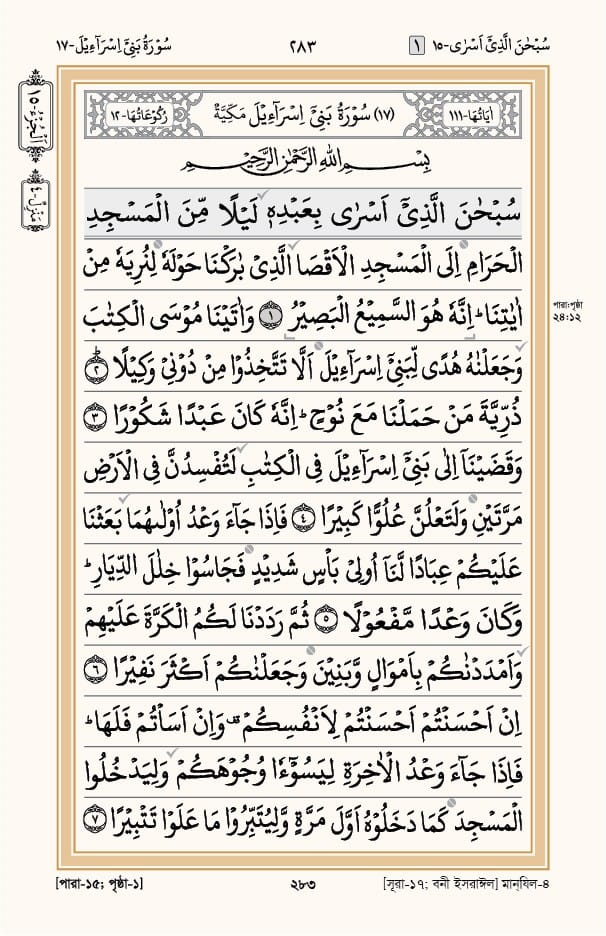 سُبْحٰنَ الَّذِیْۤ اَسْرٰی-١٥ ١
٢٨٣
سُوْرَةُ بَنِیْۤ اِسْرَآءِیْلَ-١٧
اَلْجُزْءُ-١٥
مَنْزِل-٤
اٰیَاتُهَا-١١١
(١٧) سُوْرَةُ بَنِیْۤ اِسْرَآءِیْلَ مَکِّیَّةٌ
رُکُوْعَاتُهَا-١٢
بِسْمِ اللهِ الرَّحْمٰنِ الرَّحِیْمِ
سُبْحٰنَ الَّذِیْۤ اَسْرٰی بِعَبْدِهٖ لَیْلًا مِّنَ الْمَسْجِدِ
الْحَرَامِ اِلَی الْمَسْجِدِ الْاَقْصَا الَّذِیْ بٰرَکْنَا حَوْلَهٗ لِنُرِیَهٗ مِنْ
اٰیٰتِنَا ؕ اِنَّهٗ هُوَ السَّمِیْعُ الْبَصِیْرُ ١ وَاٰتَیْنَا مُوْسَی الْکِتٰبَ
وَجَعَلْنٰهُ هُدًی لِّبَنِیْۤ اِسْرَآءِیْلَ اَلَّا تَتَّخِذُوْا مِنْ دُوْنِیْ وَکِیْلًا ؕ ٢
ذُرِّیَّةَ مَنْ حَمَلْنَا مَعَ نُوْحٍ ؕ اِنَّهٗ کَانَ عَبْدًا شَکُوْرًا ٣
وَقَضَیْنَاۤ اِلٰی بَنِیْۤ اِسْرَآءِیْلَ فِی الْکِتٰبِ لَتُفْسِدُنَّ فِی الْاَرْضِ
مَرَّتَیْنِ وَلَتَعْلُنَّ عُلُوًّا کَبِیْرًا ٤ فَاِذَا جَآءَ وَعْدُ اُوْلٰىهُمَا بَعَثْنَا
عَلَیْکُمْ عِبَادًا لَّنَاۤ اُولِیْ بَاْسٍ شَدِیْدٍ فَجَاسُوْا خِلٰلَ الدِّیَارِ ؕ
وَکَانَ وَعْدًا مَّفْعُوْلًا ٥ ثُمَّ رَدَدْنَا لَکُمُ الْکَرَّةَ عَلَیْهِمْ
وَاَمْدَدْنٰکُمْ بِاَمْوَالٍ وَّبَنِیْنَ وَجَعَلْنٰکُمْ اَکْثَرَ نَفِیْرًا ٦
اِنْ اَحْسَنْتُمْ اَحْسَنْتُمْ لِاَنْفُسِکُمْ ۫ وَاِنْ اَسَاْتُمْ فَلَهَا ؕ
فَاِذَا جَآءَ وَعْدُ الْاٰخِرَةِ لِیَسُوْٓءٗا وُجُوْهَکُمْ وَلِیَدْخُلُوا
الْمَسْجِدَ کَمَا دَخَلُوْهُ اَوَّلَ مَرَّةٍ وَّلِیُتَبِّرُوْا مَا عَلَوْا تَتْبِیْرًا ٧
পারা:পৃষ্ঠা
২৪:১২
[পারা-১৫; পৃষ্ঠা-১]
২৮৩
[সূরা-১৭; বনী ইসরাঈল] মান্‌যিল-৪